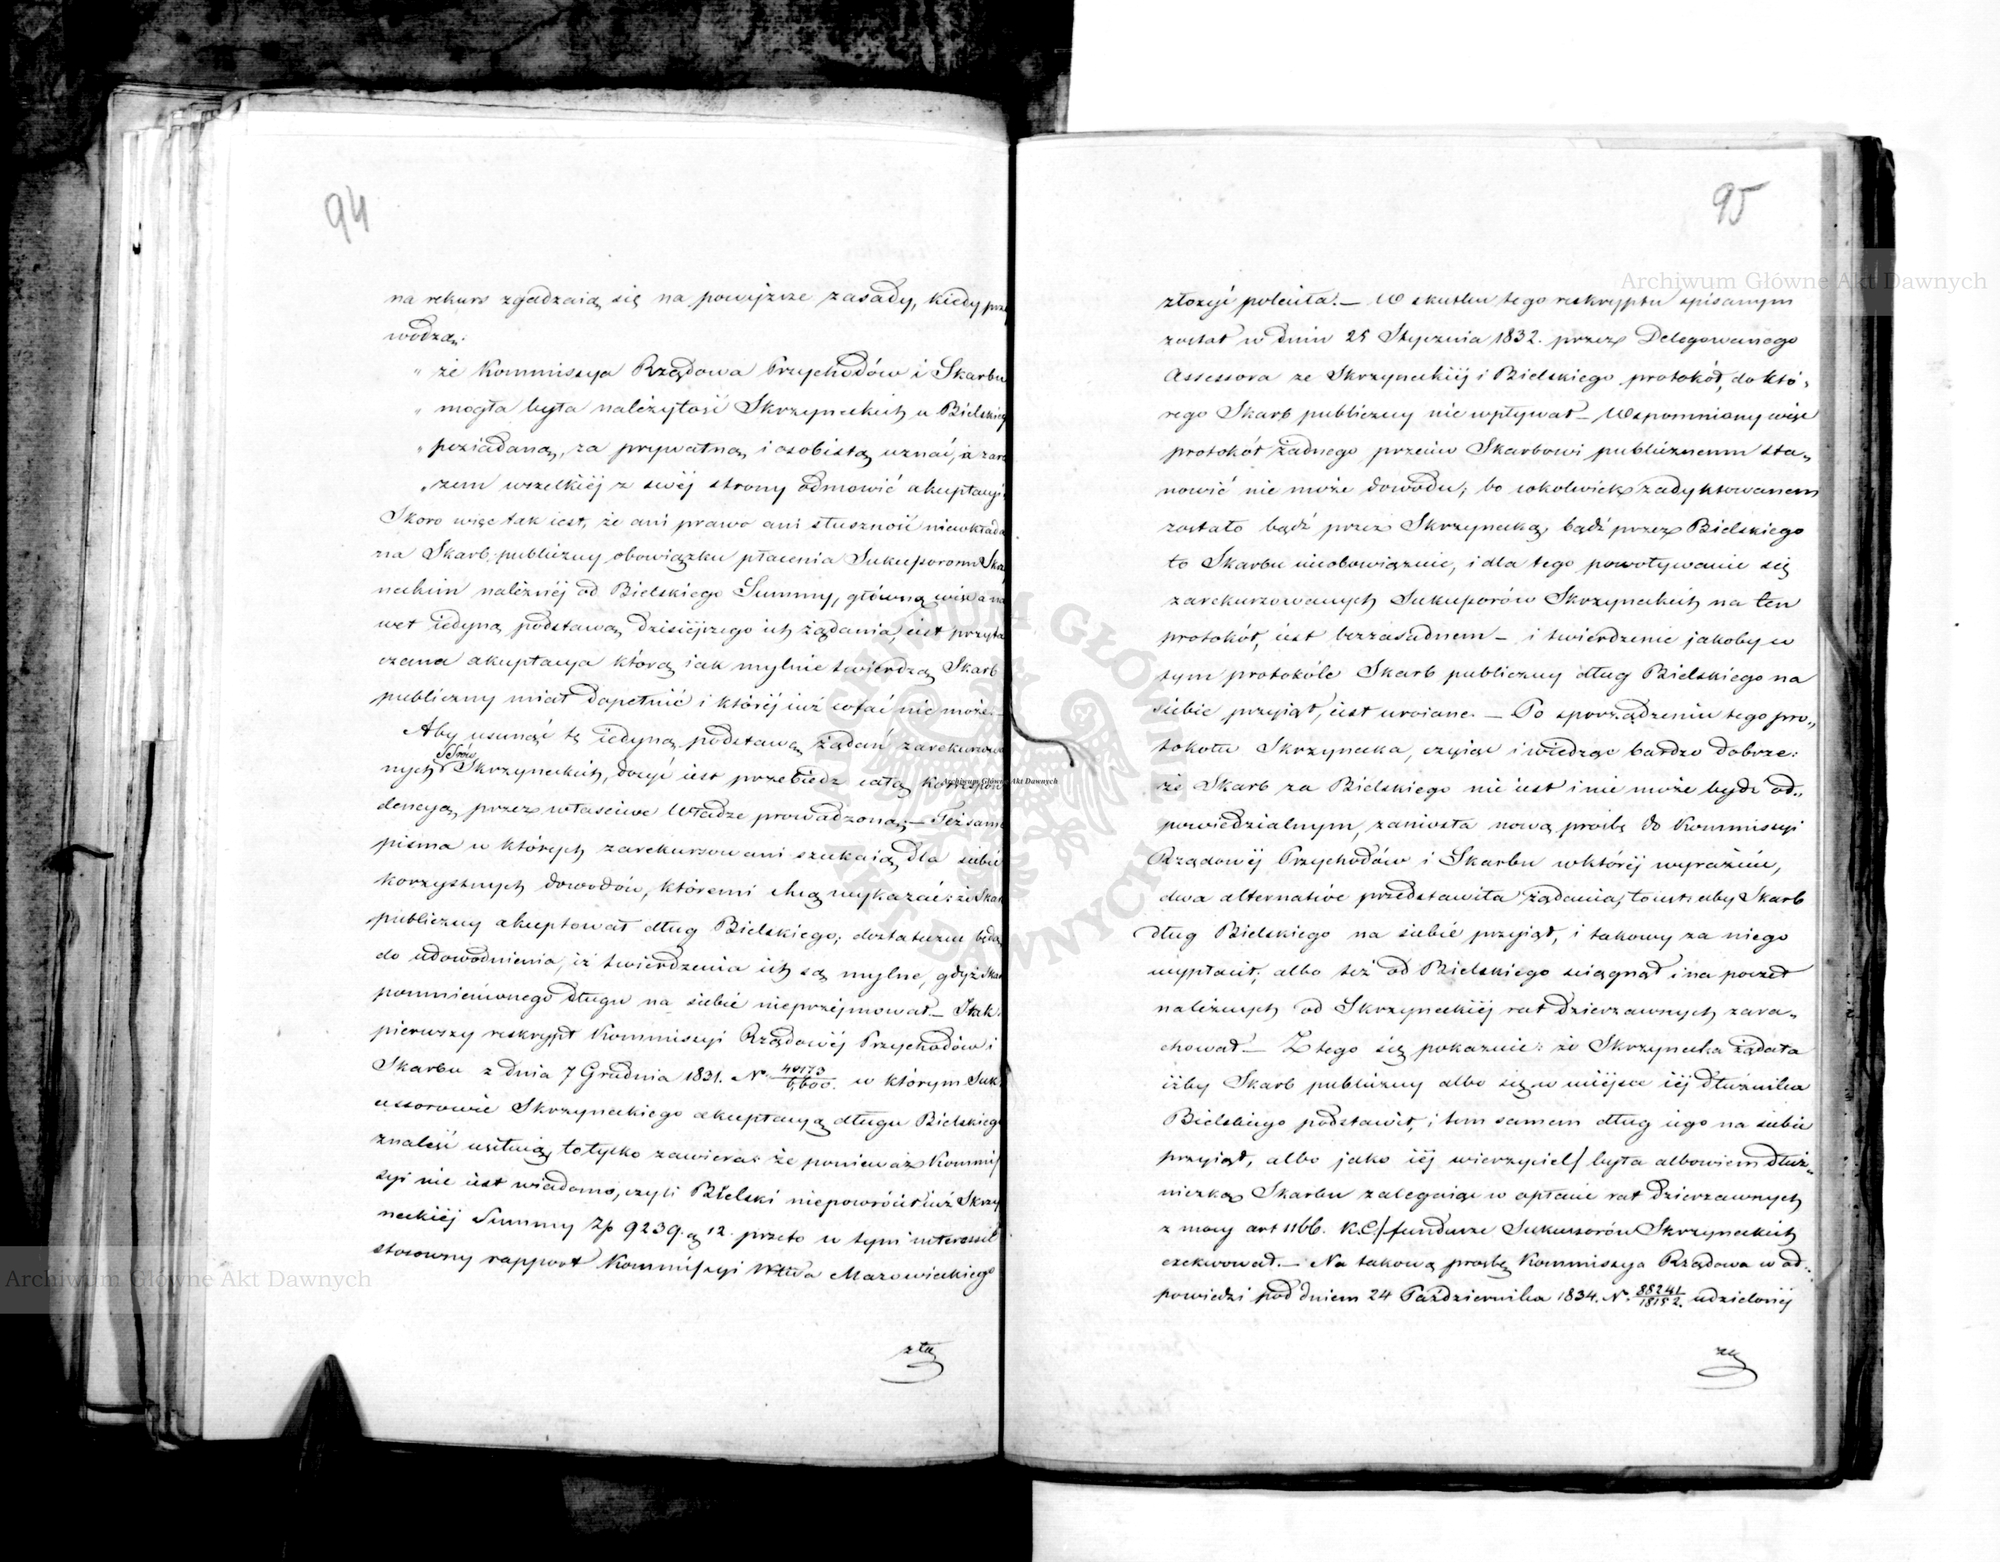 94
na rekurs zgadzaią się na powyższe zasady, kiedy prze
wodzą:
„ że Kommissya Rządowa Przychodów i Skarbu
„ mogła była należytość Skrzyneckich u Bielskieg
„ poziadaną, za prywatną i osobistą uznać, a zara
„ zem wszelkiéj z swéj strony odmowić akceptacyi.
Skoro więc tak iest, że ani prawo ani słuszność niewkłada
na Skarb publiczny obowiązku płacenia Sukcessorom Skrzy
neckim należnéj od Bielskiego Summy, główną więc a na
wet iedyną podstawą dzisieyszego ich żądania iest przyta
czana akceptacya którą iak mylnie twierdzą Skarb
publiczny miał dopełnić i któréj iuż cofać nie może.—
Aby usunąć tę iedyną podstawę żądań zarekurso
nych SSrów Skrzyneckich, dosyć iest przebiedz całą korrespon
dencyą przez właściwe Władze prowadzoną;— Też same
pisma w których zarekursowani szukaią dla siebie
korzystnych dowodów, któremi chcą wykazać: że Skar
publiczny akceptował dług Bielskiego; dostateczne będą
do udowodnienia, iż twierdzenia ich są mylne, gdyż Skar
pomienionego długu na siebie nieprzéjmował.— I tak:
pierwszy reskrypt Kommissyi Rządowéj Przychodów i
Skarbu z dnia 7 Grudnia 1831. No 40173/6,600. w którym Suk
cessorowie Skrzyneckiego akceptacyą długu Bielskieg
znaleść usiłuią, to tylko zawiera: że ponieważ Kommis
syi nie iest wiadomo, czyli Bielski niepowrócił iuż Skrzy
neckiéj Summy Zp 9239. g 12. przeto w tym interessie
stosowny rapport Kommissyi Wdtwa Mazowieckiego
złą
95
złożyć poleciła.— W skutku tego reskryptu spisanym
został w dniu 25 Stycznia 1832. przez Delegowanego
Assessora ze Skrzyneckiéj i Bielskiego protokół, do któ„
rego Skarb publiczny nie wpływał— Wspomniony więc
protokół żadnego przeciw Skarbowi publicznemu sta„
nowić nie może dowodu; bo cokolwiek zadyktowanem
zostało bądź przez Skrzynecką, bądź przez Bielskiego
to Skarbu nieobowiązuie, i dla tego powoływanie się
zarekurzowanych Sukcessorów Skrzyneckich na ten
protokół, iest bezzasadnem— i twierdzenie jakoby w
tym protokóle Skarb publiczny dług Bielskiego na
siebie przyiął, iest uroione.— Po sporządzeniu tego pro„
tokołu Skrzynecka, czyiąc i wiedząc bardzo dobrze:
że Skarb za Bielskiego nie iest i nie może bydź od„
powiedzialnym, zaniosła nową prośbę do Kommissyi
Rządowéj Przychodów i Skarbu w któréj wyraźnie,
dwa alternative przedstawiła żądania, to iest: aby Skarb
dług Bielskiego na siebie przyiął, i takowy za niego
wypłacił; albo też od Bielskiego sciągnął i na poczet
należnych od Skrzyneckiéj rat dzierzawnych zara„
chował.— Z tego się pokazuie: że Skrzynecka żądała
iżby Skarb publiczny albo się w miéjsce iéj dłużnika
Bielskiego podstawił, i tem samem dług iego na siebie
przyiął, albo jako iéj wierzyciel/ była albowiem dłuż„
niczką Skarbu zalegaiąc w opłacie rat dzierzawnych
z mocy art 1166. K.C./ fundusze Sukcessorów Skrzyneckich
exekwował.— Na takową prośbę Kommissya Rządowa w od„
powiedzi pod dniem 24 Października 1834. No 88241/18152. udzielonéj
za
Archiwum Główne Akt Dawnych
Archiwum Główne Akt Dawnych
Archiwum Główne Akt Dawnych
ARCHIWUM GŁÓWNE AKT DAWNYCH